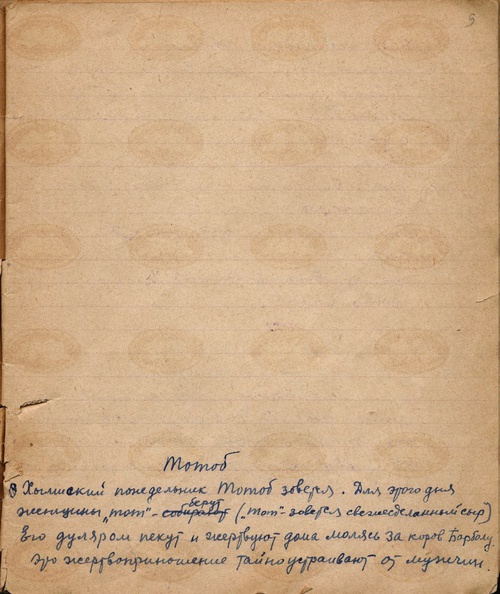 9
Мотоб
Хылиский понедельник Мотоб зовется. Для этого дня
женщины „тот"- собирают берут („тот"- зовется свежесделанный сыр)
Его дуляром пекут и жертвуют дома молясь за коров Барбалу.
Это жертвоприношение тайно устраивают от мужчин.